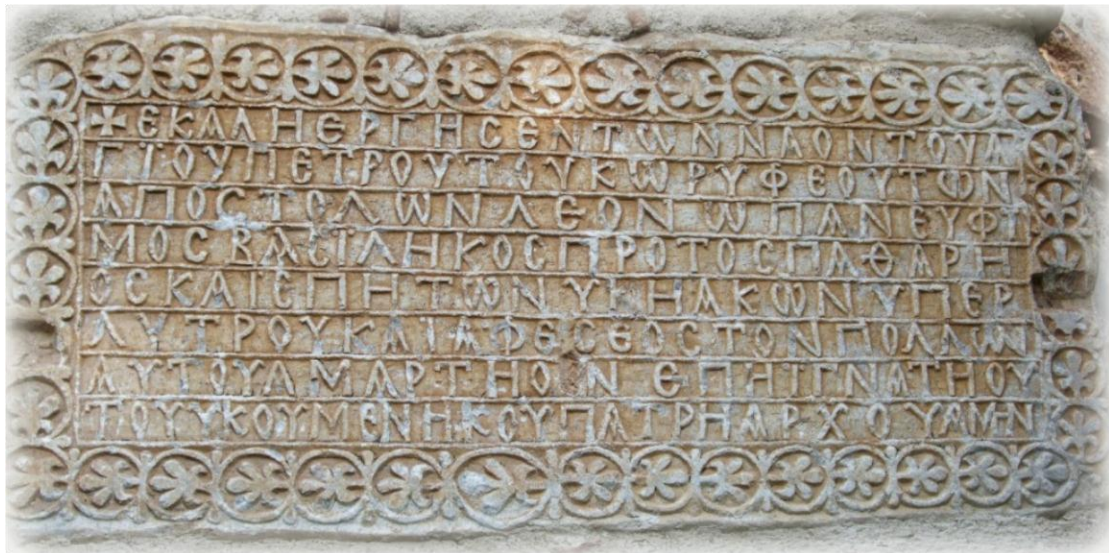 ✠ ΕΚΑΛΗΕΡΓΗCΕΝ ΤΩΝ ΝΑΟΝ ΤΟΥ Α
ΓΙΟΥ ΠΕΤΡΟΥ ΤΟΥ ΚΩΡΥΦΕΟΥ ΤΩΝ
ΑΠΟCΤΟΛΩΝ ΛΕΟΝ Ω ΠΑΝΕΥΦΙ
ΜΟC ΒΑCΙΛΗΚΟC ΠΡΟΤΟCΠΑΘΑΡΗ
ΟC ΚΑΙ ΕΠΗ ΤΩΝ ΥΚΗΑΚΩΝ ΥΠΕΡ
ΛΥΤΡΟΥ ΚΑΙ ΑΦΕCΕΟC ΤΟΝ ΠΟΛΛΩΝ
ΑΥΤΟΥ ΑΜΑΡΤΗΟΝ ΕΠΗ ΙΓΝΑΤΗΟΥ
ΤΟΥ ΥΚΟΥΜΕΝΗΚΟΥ ΠΑΤΡΗΑΡΧΟΥ ΑΜΗΝ